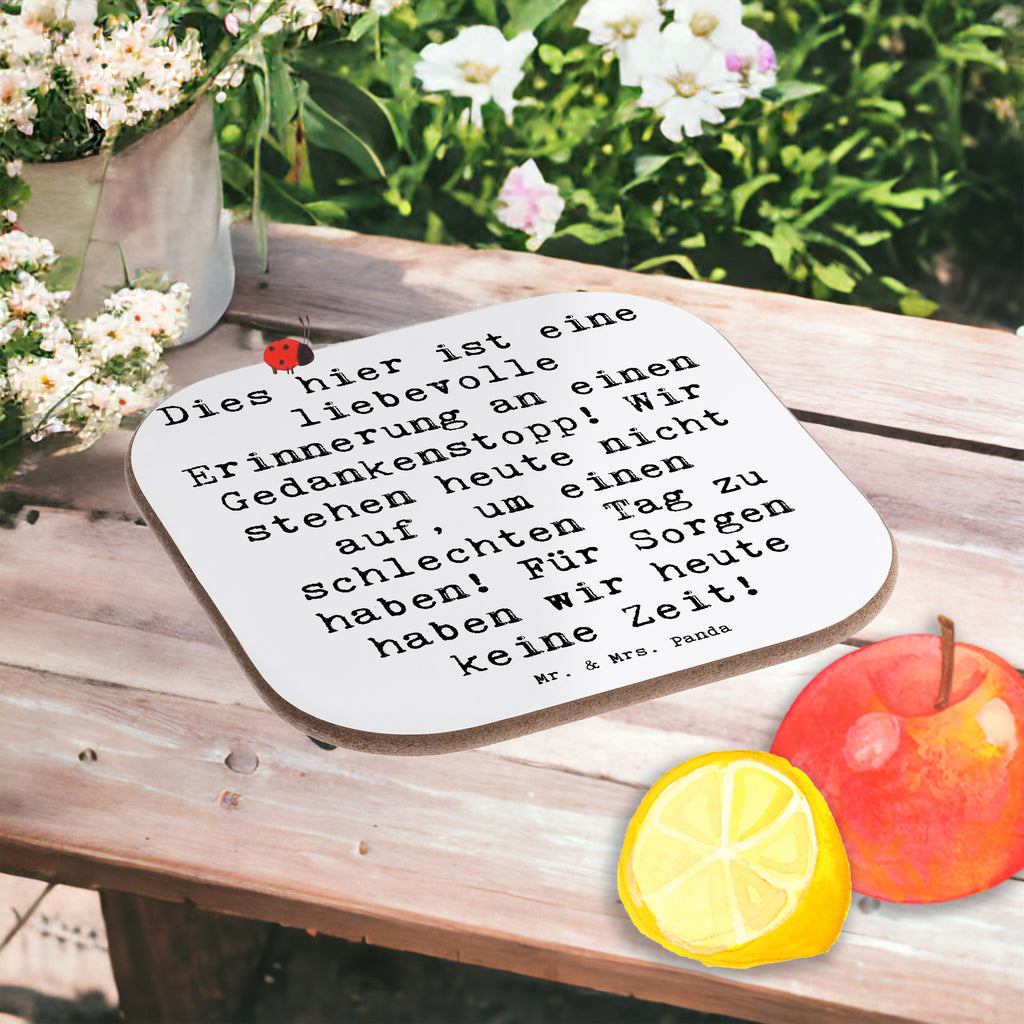 Dies hier ist eine
liebevolle
Erinnerung an einen
Gedankenstopp! Wir
stehen heute nicht
auf, um einen
schlechten Tag zu
haben! Für Sorgen
haben wir heute
keine Zeit!
Mr. & Mrs. Panda